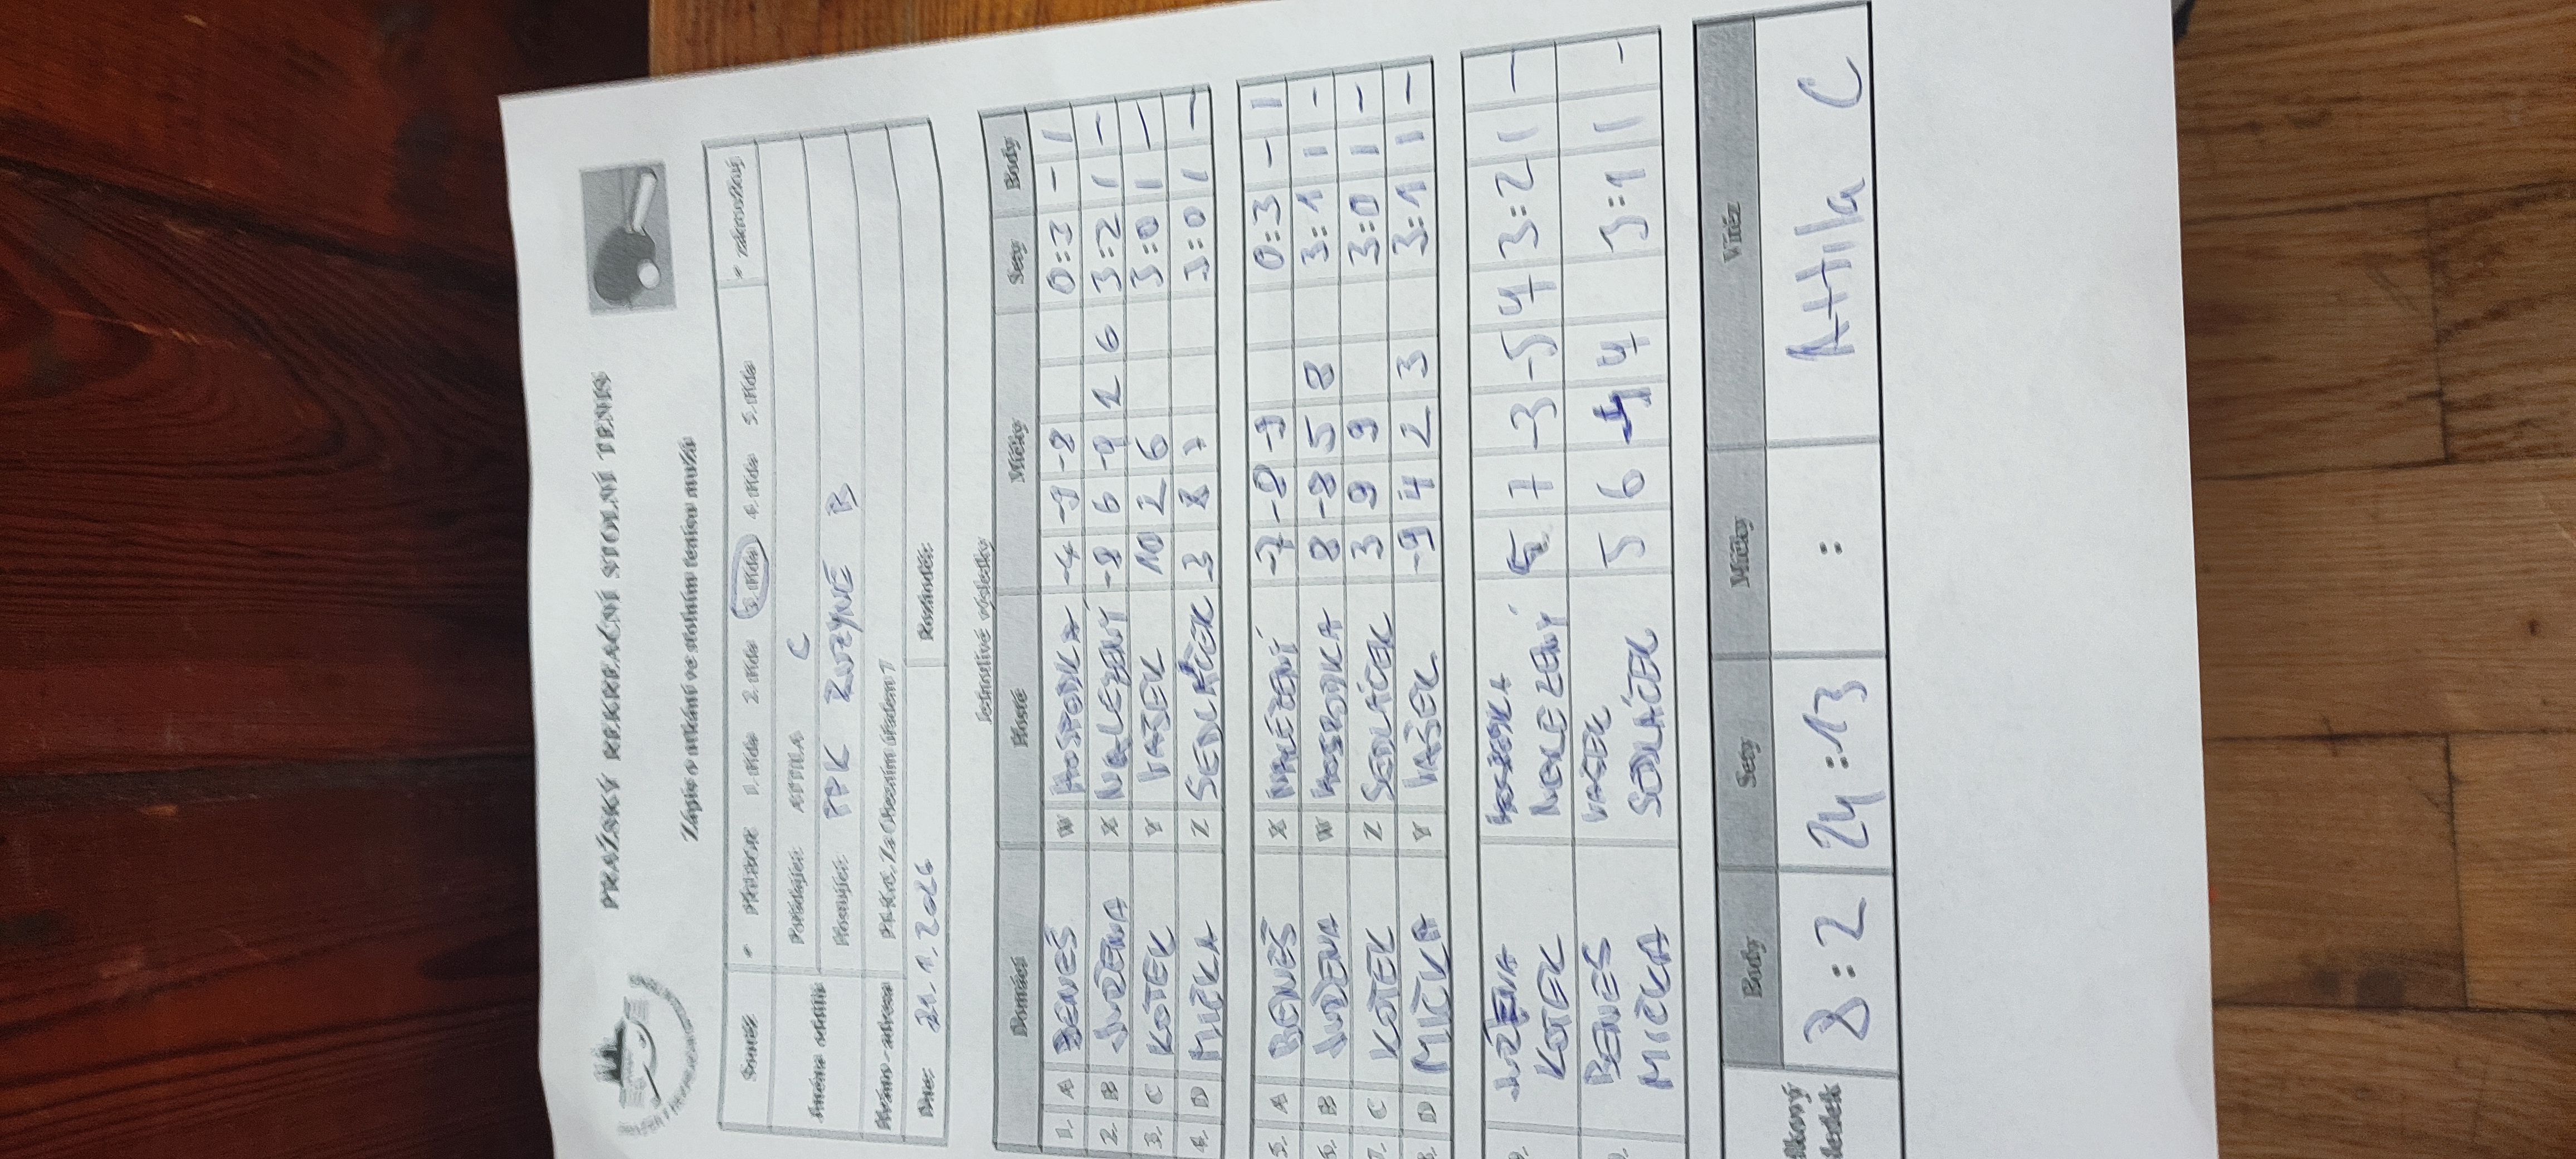 PRAŽSKÝ REKREAČNÍ STOLNÍ TENIS
Zápis o utkání ve stolním tenisu mužů
Soutěž: • PŘEBOR 1. třída 2. třída 3. třída 4. třída 5. třída • zákroužkuj
Jména oddílů Pořádající: ATTILA C
Hostující: PPK RUZYNĚ B
Hráno - adresa
Dne: 21. 1. 2026 Rozhodčí:
Jednotlivé výsledky
Domácí Hosté Míčky Sety Body
1. A BENEŠ W HOSPODKA -4 -9 -8 0:3 - 1
2. B HUDENA X NALEZENÝ -8 6 -9 2 6 3:2 1 -
3. C KOTEK Y VAŠEK 10 2 6 3:0 1 -
4. D MIČKA Z SEDLÁČEK 3 8 7 3:0 1 -
5. A BENEŠ X NALEZENÝ -7 -8 -9 0:3 - 1
6. B HUDENA W HOSPODKA 8 -8 5 8 3:1 1 -
7. C KOTEK Z SEDLÁČEK 3 9 9 3:0 1 -
8. D MIČKA Y VAŠEK -9 4 2 3 3:1 1 -
KOTEK NALEZENÝ 5 7 -3 -5 4 3:2 1 -
BENEŠ VAŠEK
MIČKA SEDLÁČEK 5 6 -4 4 3:1 1 -
Body Sety Míčky Vítěz
lkový
ledek 8:2 24:13 : Attila C